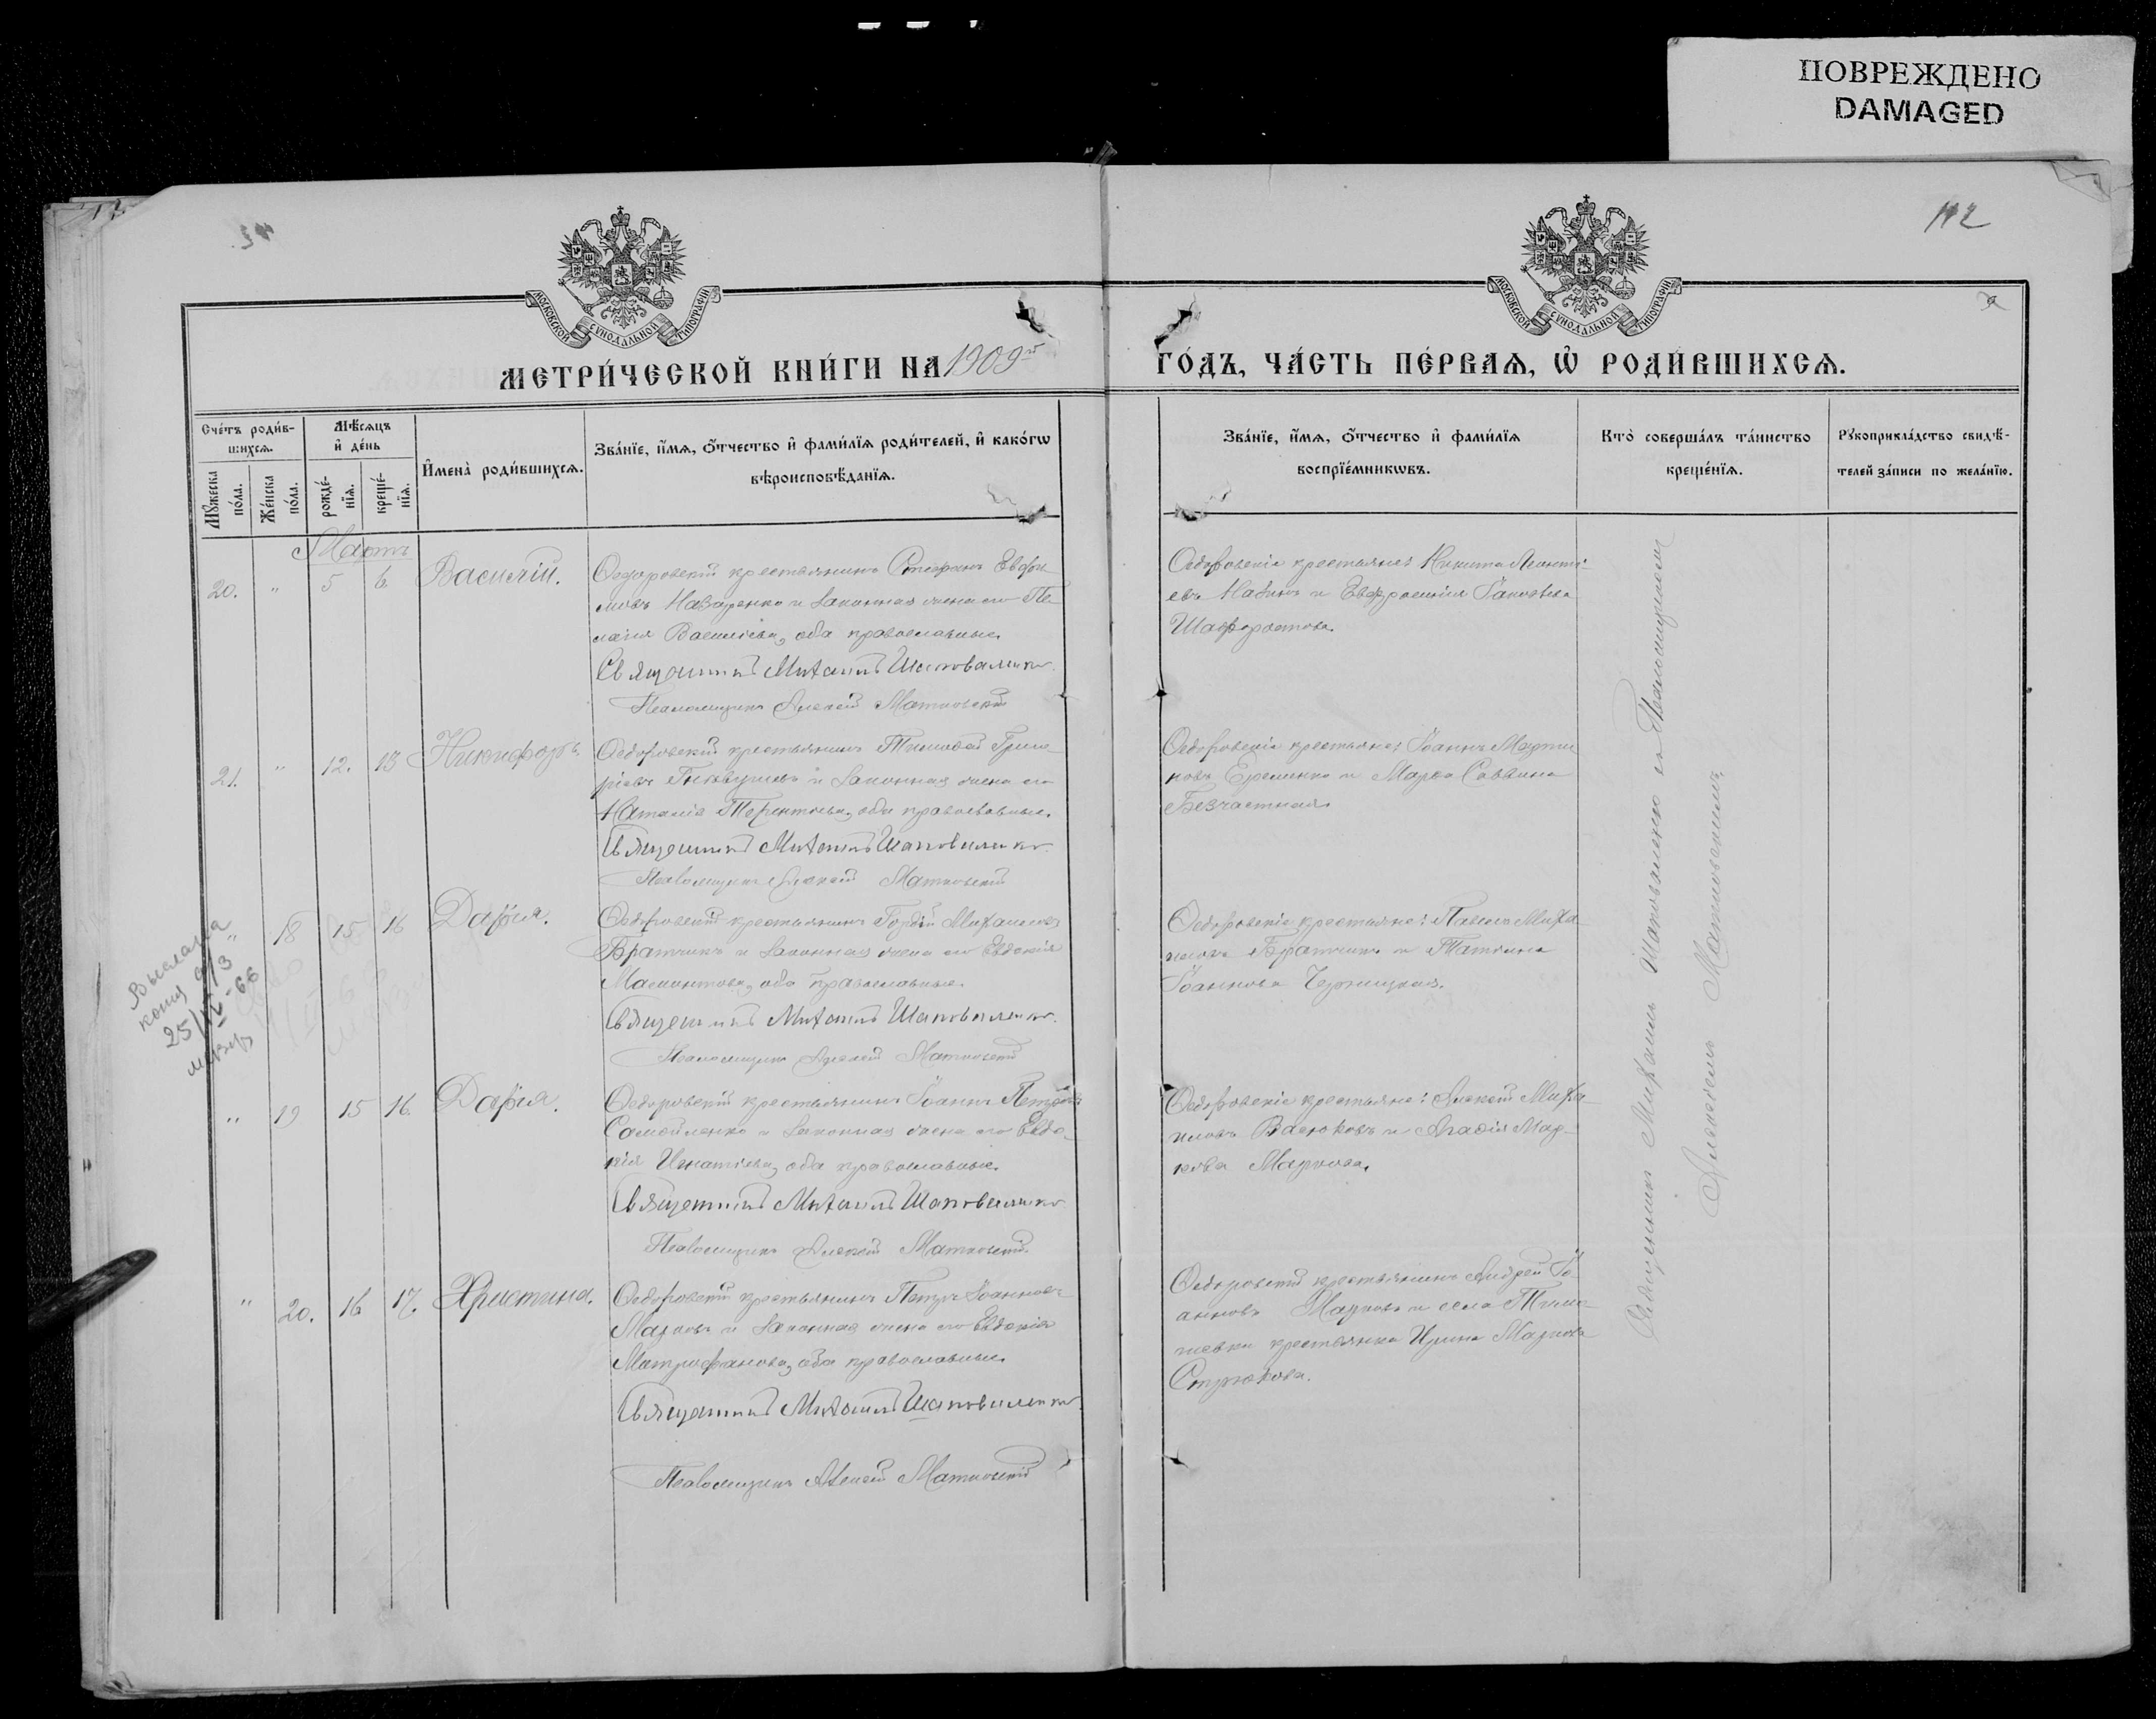 ПОВРЕЖДЕНО
DAMAGED
112
МОСКОВСКОЙ СѴНОДАЛЬНОЙ ТИПОГРАФІИ
МОСКОВСКОЙ СѴНОДАЛЬНОЙ ТИПОГРАФІИ
МЕТРИ́ЧЕСКОЙ КНИ́ГИ НА 1909 й ГО́ДЪ, ЧА́СТЬ ПЕ́РВАѦ, Ѡ РОДИ́ВШИХСѦ.
Сче́тъ роди́в-
шихсѧ.
Мꙋ́жеска
по́ла.
Же́нска
по́ла.
Мѣ́сѧцъ
и҆ де́нь
рожде́-
нїѧ.
креще́-
нїѧ.
И҆мена̀ роди́вшихсѧ.
Зва́нїе, и҆́мѧ, ѻ҆́тчество и҆ фами́лїѧ роди́телей, и҆ како́гѡ
вѣроисповѣ́данїѧ.
Зва́нїе, и҆́мѧ, ѻ҆́тчество и҆ фами́лїѧ
воспрїе́мникѡвъ.
Кто̀ соверша́лъ та́инство
креще́нїѧ.
Рꙋкоприкла́дство свидѣ́-
телей за́писи по жела́нїю.
Мартъ
20. " 5 6 Василій.
Ѳедоровскій крестьянинъ Стефанъ Евѳи-
мовъ Назаренко и законная жена его Пе-
лагія Васильева, оба православные.
Священникъ Михаилъ Шаповаленко
Псаломщикъ Алексѣй Матковскій
Ѳедоровскіе крестьяне: Никита Леонті-
евъ и Евфросинія Іаковлева
Шаф
21. " 12. 13 Никифоръ.
Ѳедоровскій крестьянинъ Тимоѳей Григо-
ріевъ и законная жена его
Наталія Терентіева, оба православные.
Священникъ Михаилъ Шаповаленко
Псаломщикъ Алексѣй Матковскій
Ѳедоровскіе крестьяне: Іоаннъ Марти-
новъ Еременко и Марѳа Саввина
Безчастная.
" 18 15 16 Дарія.
Ѳедоровскій крестьянинъ Гордій Михаиловъ
Братчикъ и законная жена его Евдокія
Мамонтова, оба православные.
Священникъ Михаилъ Шаповаленко
Псаломщикъ Алексѣй Матковскій
Ѳедоровскіе крестьяне: Павелъ Миха-
иловъ Братчикъ и Татіана
Іоаннова
Выслана
копия
25/IV-66
" 19 15 16. Дарія.
Ѳедоровскій крестьянинъ Іоаннъ Петровъ
Самойленко и законная жена его Евдо-
кія Игнатіева, оба православные.
Священникъ Михаилъ Шаповаленко
Псаломщикъ Алексѣй Матковскій
Ѳедоровскіе крестьяне: Алексѣй Миха-
иловъ Васюковъ и Агаѳія Мар-
кова Маркова.
" 20. 16 17. Христина.
Ѳедоровскій крестьянинъ Петръ Іоанновъ
Марковъ и законная жена его Евдокія
Митрофанова, оба православные.
Священникъ Михаилъ Шаповаленко
Псаломщикъ Алексѣй Матковскій
Ѳедоровскій крестьянинъ Андрей Іо-
анновъ Марковъ и села Тима-
шевки крестьянка Ирина Маркова
Стрюкова.
Священникъ Михаилъ Шаповаленко съ Псаломщикомъ
Алексѣемъ Матковскимъ.